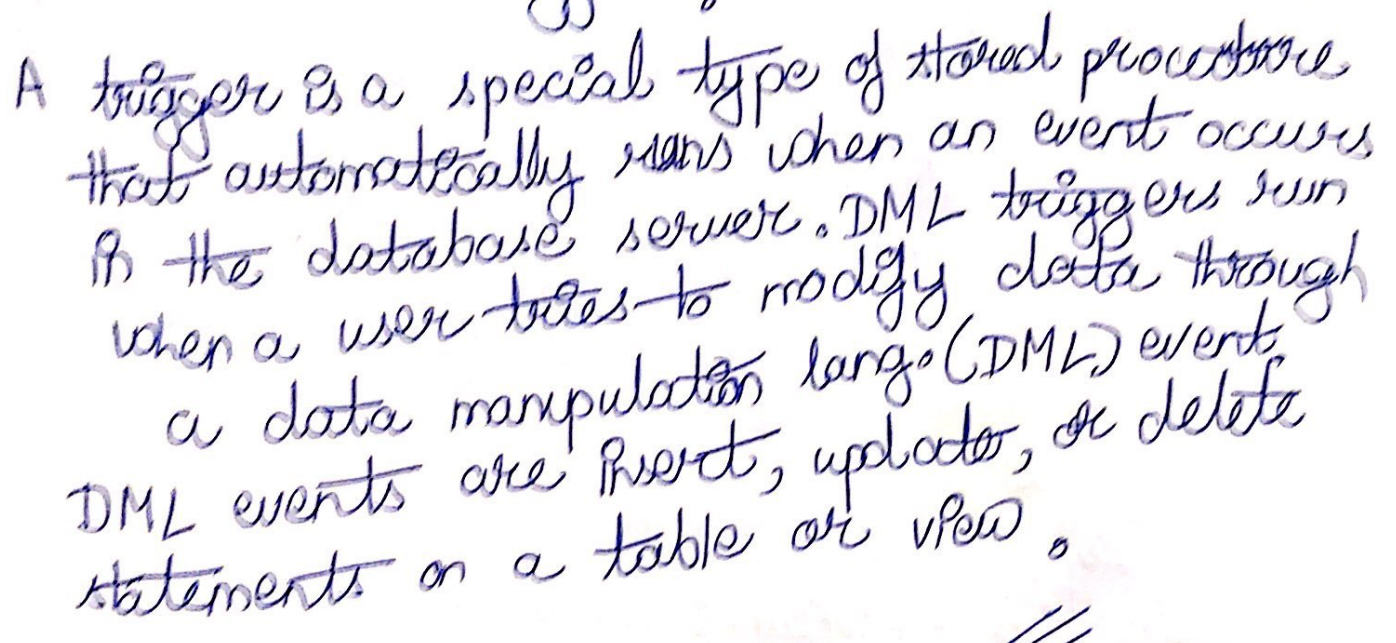 A trigger is a special type of stored procedure
that automatically runs when an event occurs
in the database server. DML triggers run
when a user tries to modify data through
a data manipulation lang. (DML) event.
DML events are insert, update, or delete
statements on a table or view.